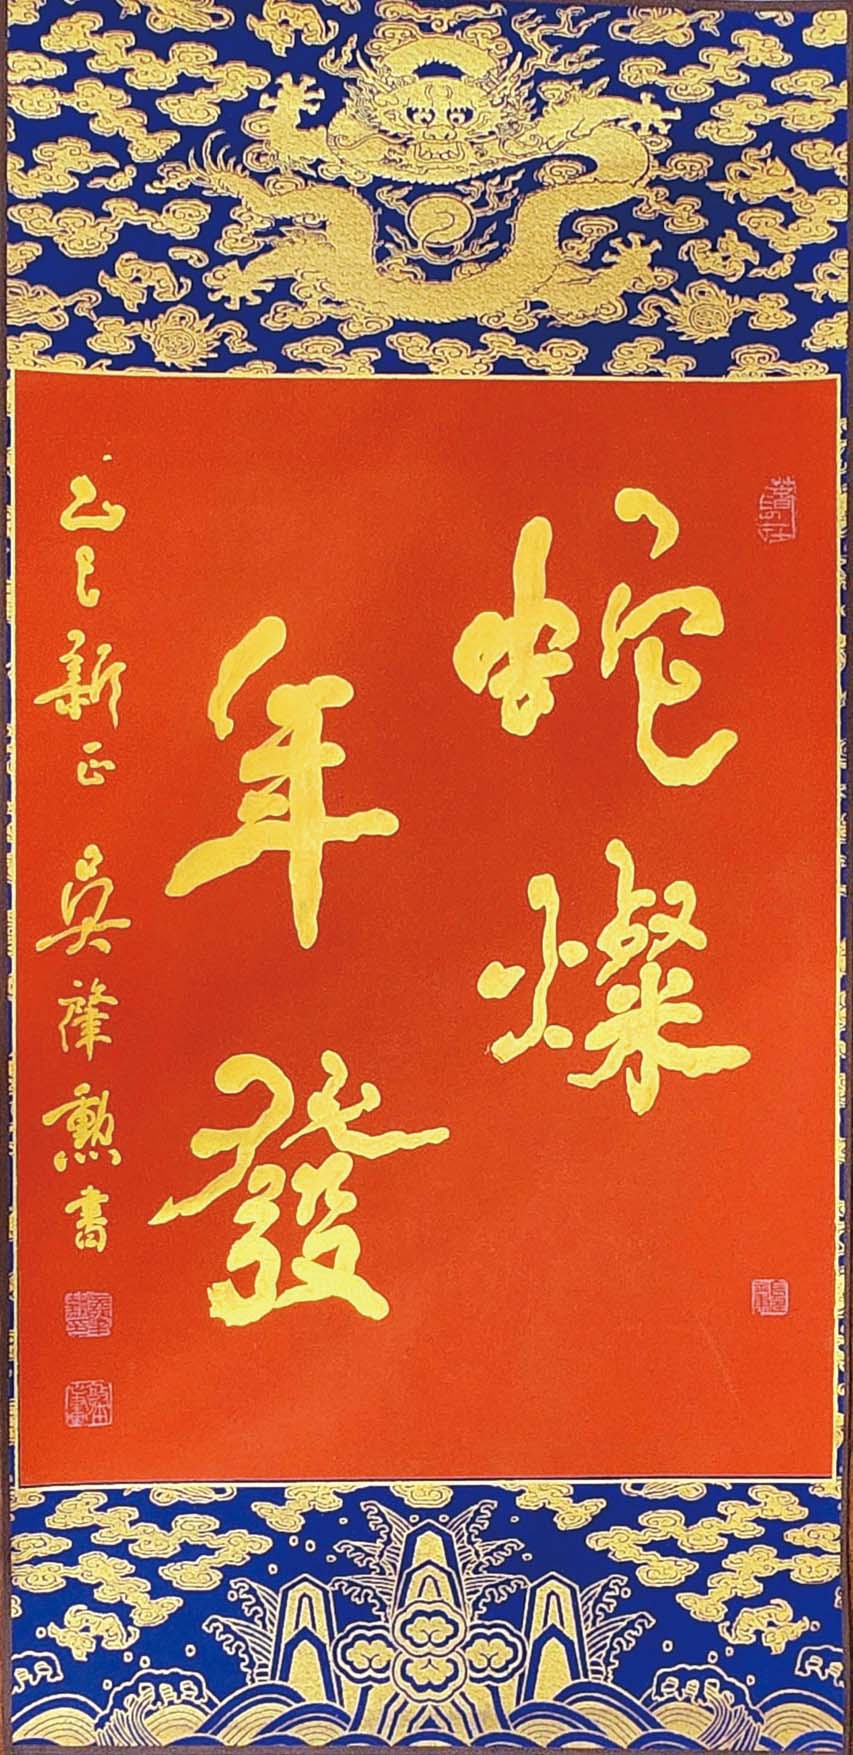 蛇燦
年發
乙巳新正 吳肇勲書